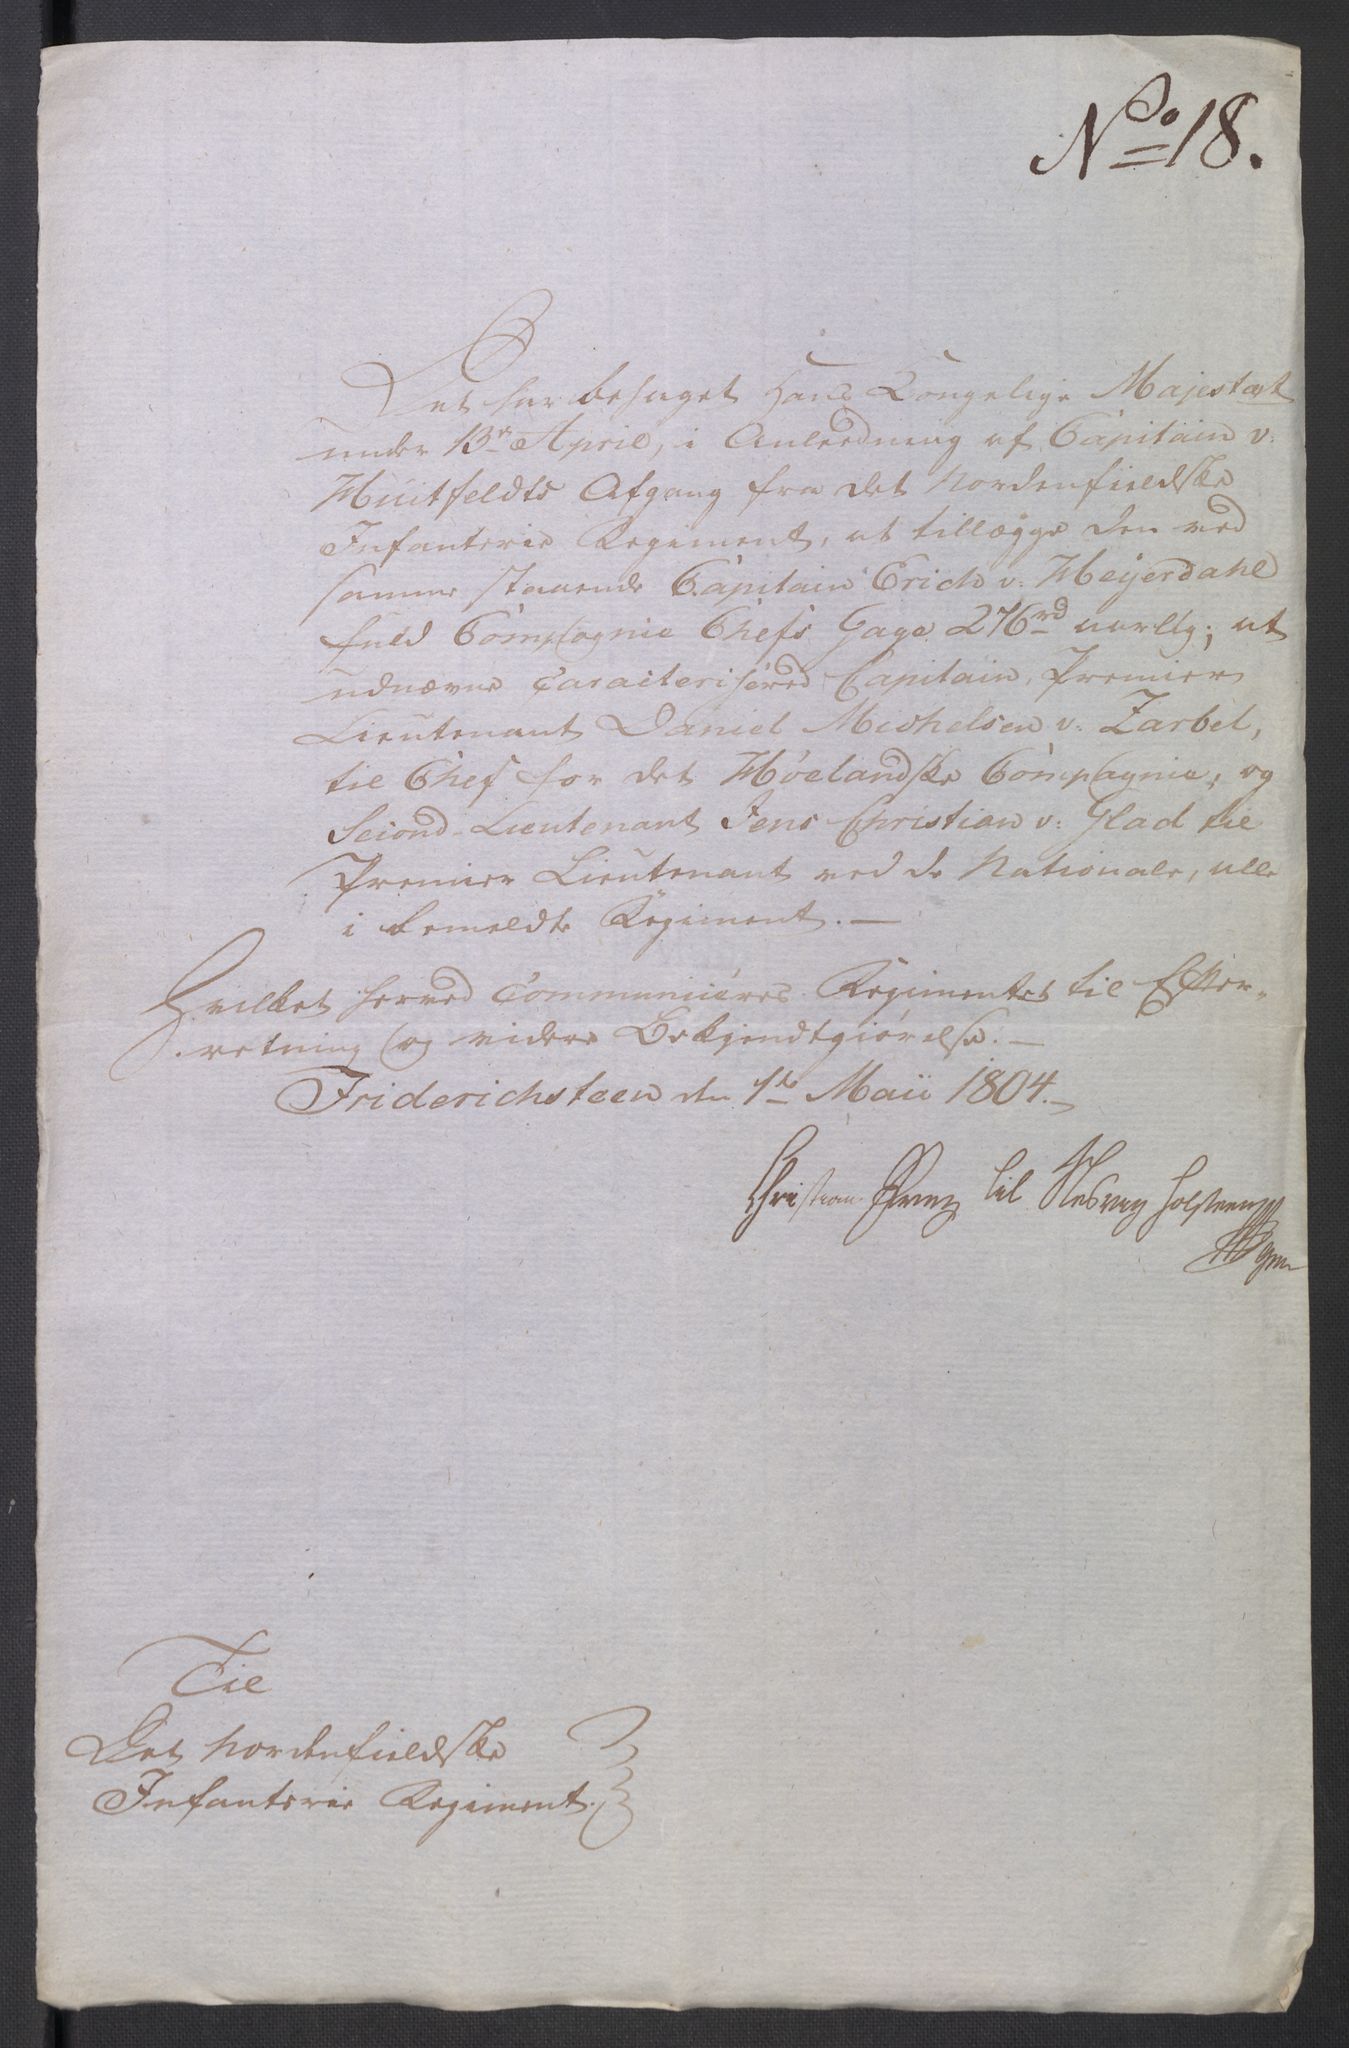 No 18.
Det har behaget Hans Kongelige Majestæt
under 13de April, i Anledning af Capitain v:
Huitfeldts Afgang fra det Nordenfieldske
Infanterie Regiment, at tillægge den ved
samme staaende Capitain Erich v: Heyerdahl
fuld Compagnie Chefs Gage 276 rd aarlig; at
udnævne caracterisered Capitain, Premier
Lieutenant Daniel Michelsen v: Zarbel,
til Chef for det Høelandske Compagnie, og
Second-Lieutenant Jens Christian v: Glad til
Premier Lieutenant ved de Nationale, alle
i bemeldte Regiment. —
Hvilket herved Communiceres Regimentet til Efter-
retning og videre Bekjendtgiørelse. —
Friderichsteen den 1de Maii 1804. —
Christian Prinz til Slesvig Holsteen
Til
Det Nordenfieldske
Infanterie Regiment.